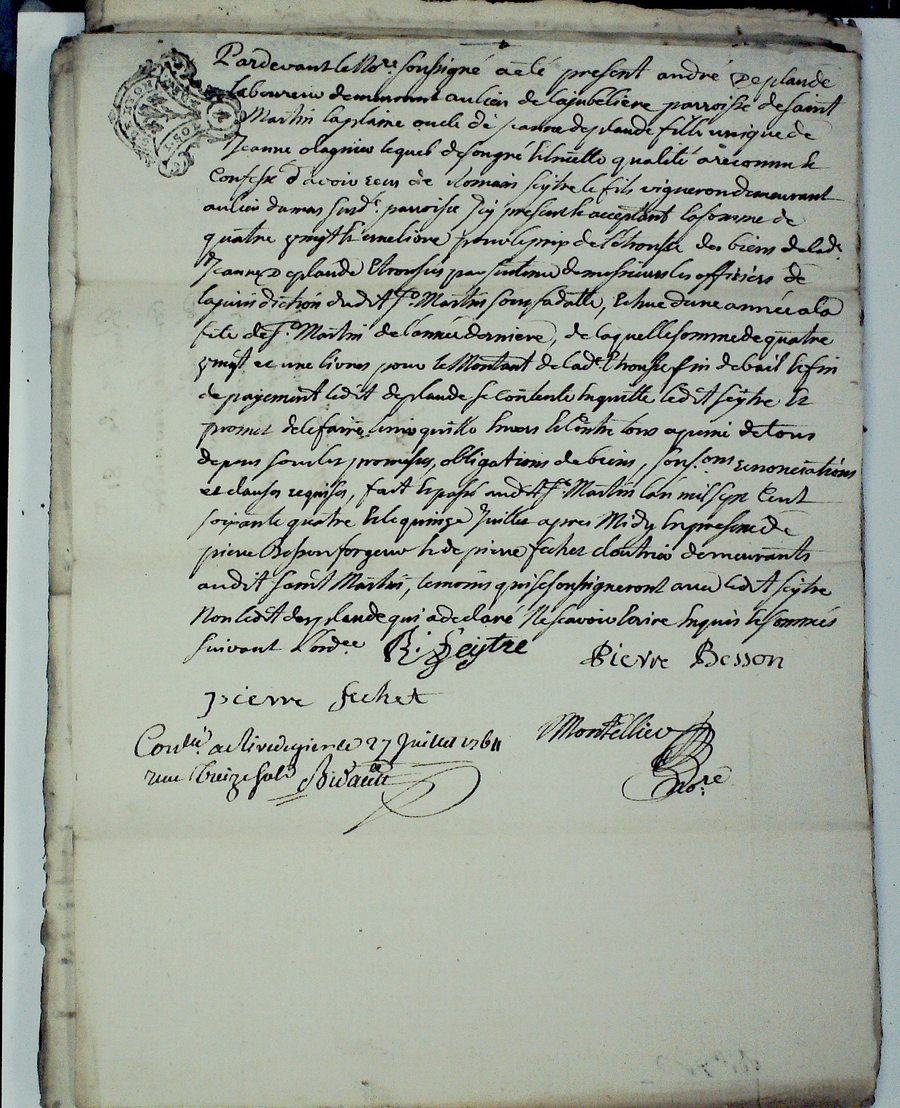 Pardevant le No.re soussigné a eté present andré Deplaude
laboureur demeurant au lieu de la jubeliere parroisse de saint
Martin la plaine oncle de jeanne deplaude fille unique de
Jeanne olagnier lequel de son gré en qualité a reconnu et
Confessé d'avoir receu de Romain seytre le fils vigneron demeurant
au lieu du mas susd. parroisse icy present et acceptant la somme de
quatre vingt et une livre pour le prix de l'etrousse des biens de lad.
Jeanne Deplaude Etroussés par sentence de messieurs les officiers de
la jurisdiction dudit St. Martin sous sa datte, Echue d'une année a la
fete de St. Martin de l'année derniere, de laquelle somme de quatre
vingt et une livres pour le Montant de lad. Etrousse fin de bail et fin
de payement ledit deplaude se contente en quitte ledit seytre Et
promet de le faire tenir quitte Envers et Contre tous a peine de tous
depens sous les promesses, obligations de biens, renonciations
et clauses requises, fait et passé audit St. Martin l'an mil sept Cent
soixante quatre et le quinze Juillet apres Midy En presence de
pierre Besson forgeur et de pierre fechet cloutrier demeurants
audit saint Martin, temoins qui se soussigneront avec ledit seytre
Non ledit deplaude qui a declaré Ne scavoir ecrire Enquis et sommés
suivant l'ord.ce R. Seytre Pierre Besson
pierre fechet
Con.lé a Rivedegier le 27 Juillet 1764 Montellier
reçu treize sols Bivault No.re